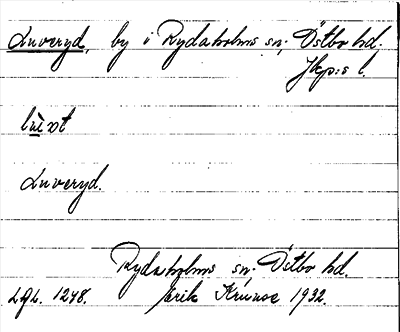 Luveryd, by i Rydaholms sn; Östbo hd.
Jkp:s l.
Luveryd.
Rydaholms sn. Östbo hd.
Lgh. 1248. Erik Kruuse 1932.